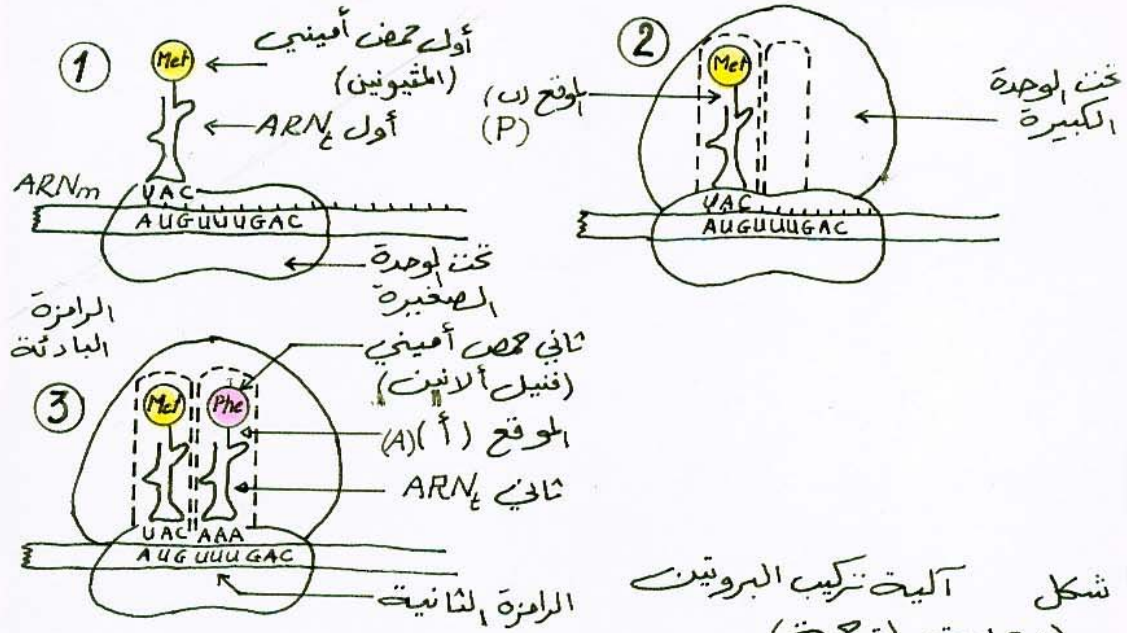 ①
Met
أول حمض أميني
(المثيونين)
أول ARNt
ARNm
UAC
AUGUUUGAC
تحت الوحدة
الصغيرة
②
Met
الموقع (ب)
(P)
تحت الوحدة
الكبيرة
UAC
AUGUUUGAC
الرامزة
البادئة
③
Met
Phe
ثاني حمض أميني
(فنيل ألانين)
الموقع (أ) (A)
ثاني ARNt
UAC AAA
AUG UUU GAC
الرامزة الثانية
شكل آلية تركيب البروتين